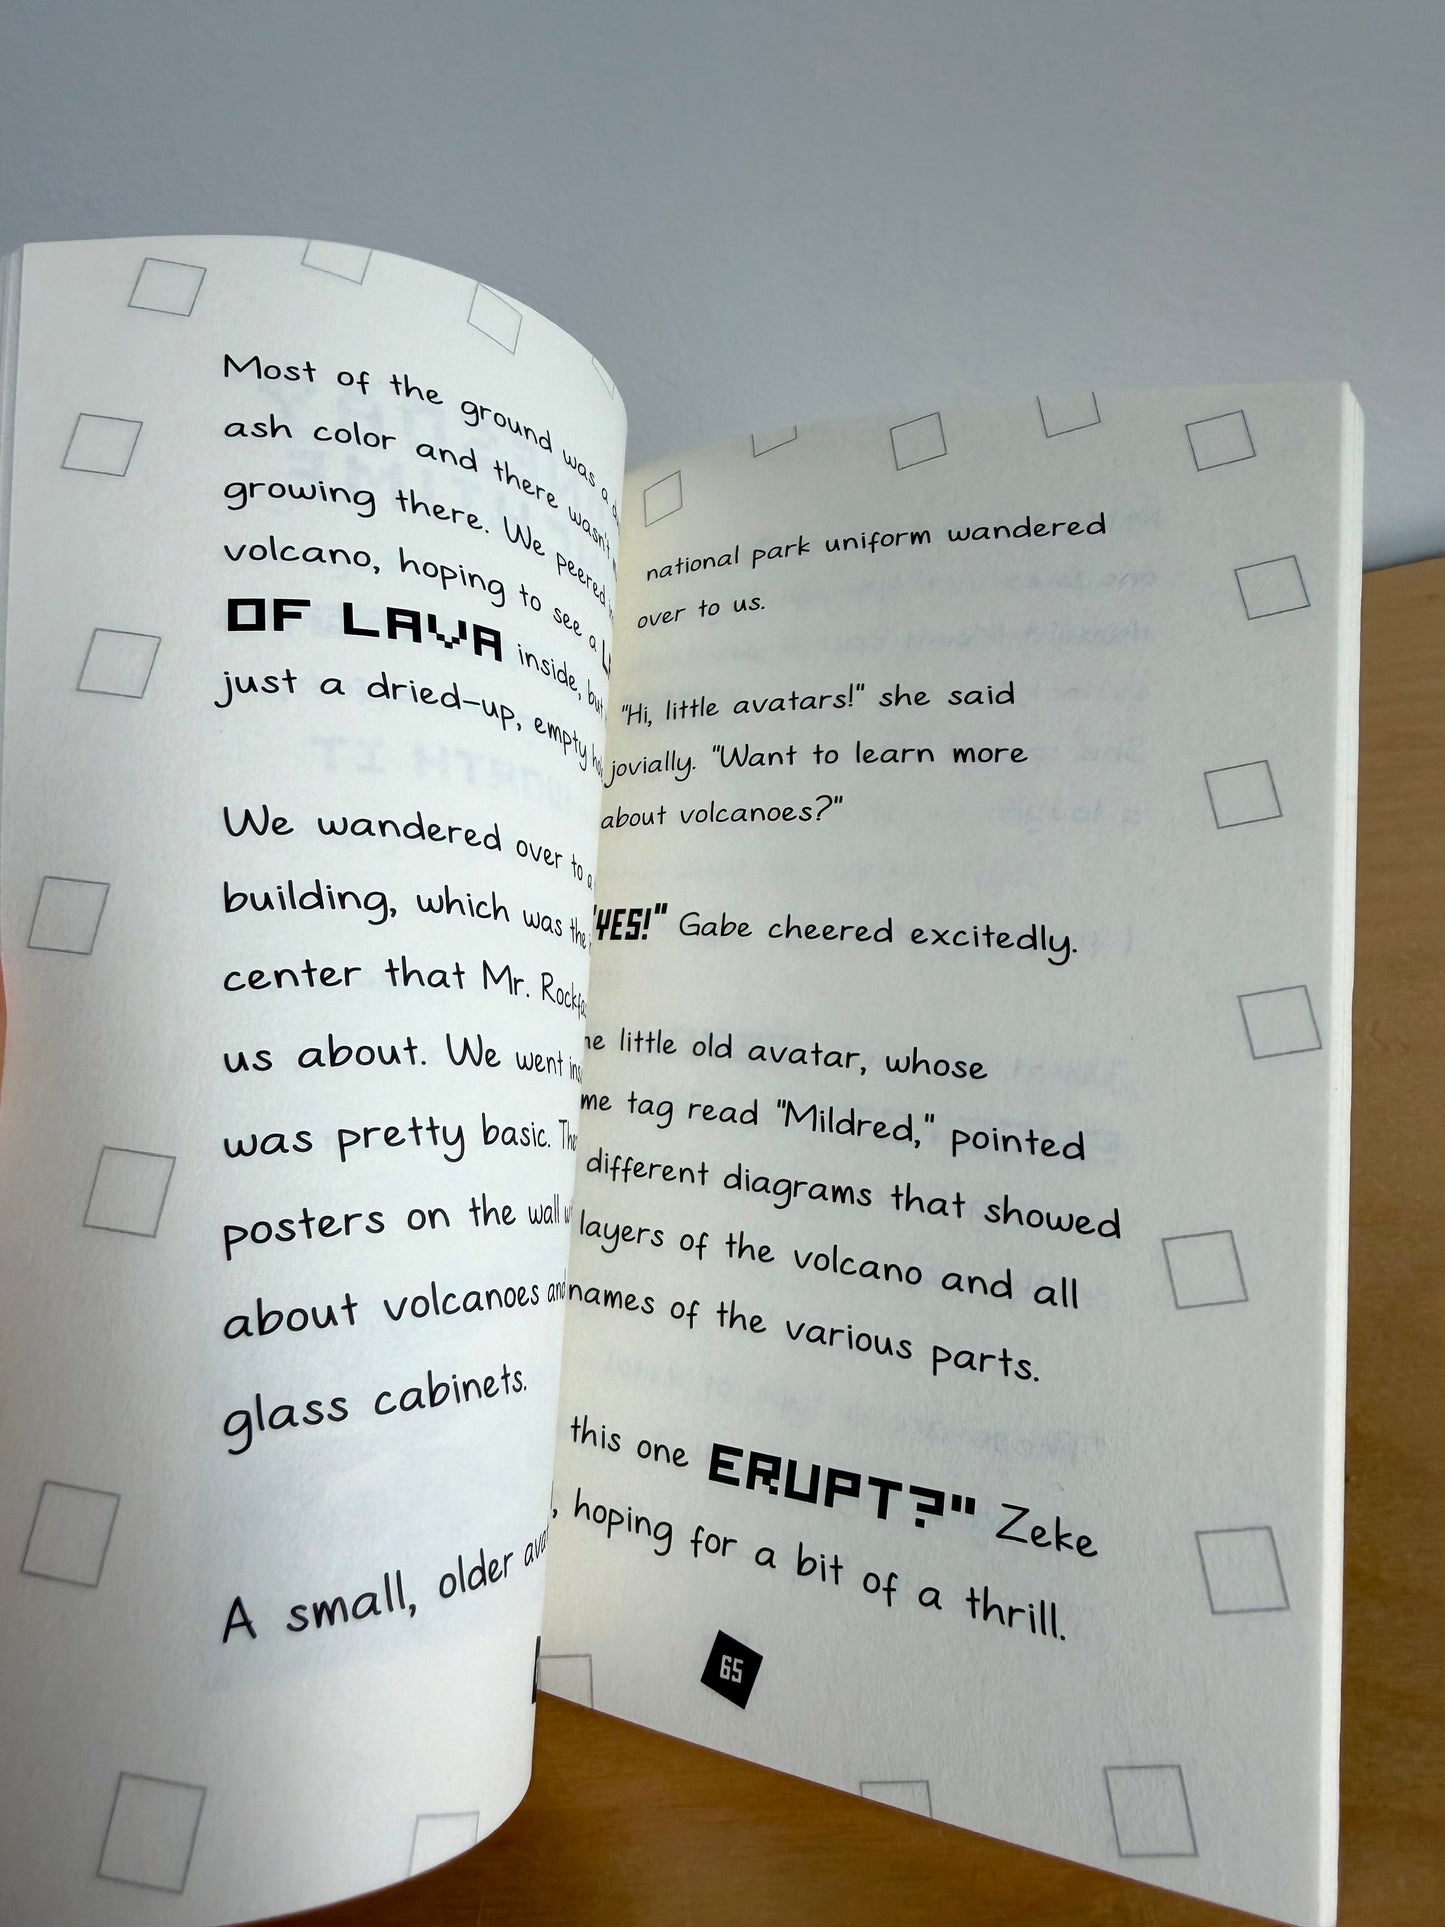 Most of the ground was a
ash color and there wasn't
growing there. We peered
volcano, hoping to see a
OF LAVA inside, but
just a dried-up, empty
We wandered over to a
building, which was the
center that Mr.
us about. We went
was pretty basic.
posters on the wall
about volcanoes and
glass cabinets.
A small, older
national park uniform wandered
over to us.
"Hi, little avatars!" she said
jovially. "Want to learn more
about volcanoes?"
"YES!" Gabe cheered excitedly.
little old avatar, whose
tag read "Mildred," pointed
different diagrams that showed
layers of the volcano and all
names of the various parts.
this one ERUPT?" Zeke
, hoping for a bit of a thrill.
65